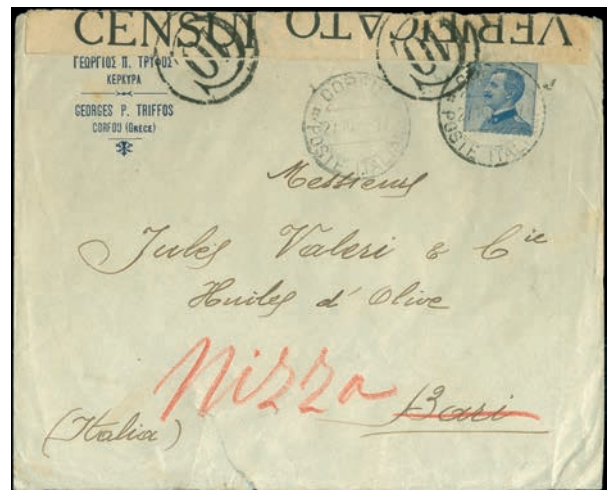 CENSU
VERIFICATO
ΓΕΩΡΓΙΟΣ Π. ΤΡΥΦΟΣ
ΚΕΡΚΥΡΑ
GEORGES P. TRIFFOS
CORFOU (GRECE)
POSTE ITALIA
POSTE ITAL
Messieurs
Jules Valeri & Cie
Huiles d'Olive
Nizza
Bari
(Italia)